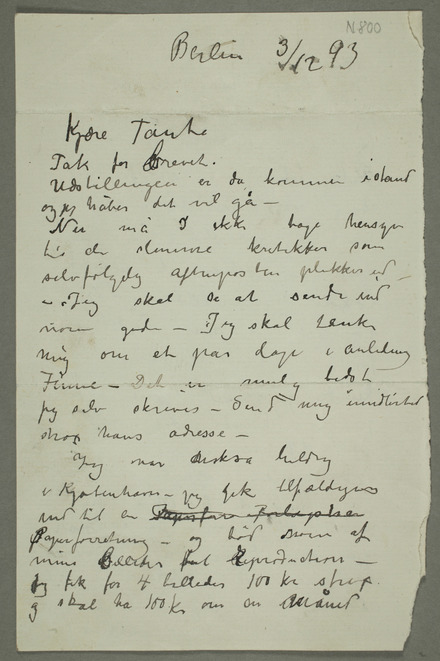 N 800
Berlin 3/12 93
Kjære Tante
Tak for Brevet.
Udstillingen er da kommen istand
og jeg håber det vil gå –
Nu må I ikke tage hensyn
til de slemme kritikker som
selvfølgelig aftenposten plukker ud
– Jeg skal se at sende ind
nogen gode – Jeg skal tænke
mig om et par dage i anledning
Det er muligens bedst
jeg selv skriver – Send mig imidlertid
strax hans adresse –
Jeg var også heldig
i Kjøbenhavn – jeg gik tilfældigvis
ind til en
Papirforretning – og bød
mine Billeder til Reproduction –
Jeg fik for 4 billeder 100 kr strax
og skal ha 100 kr om en Måned